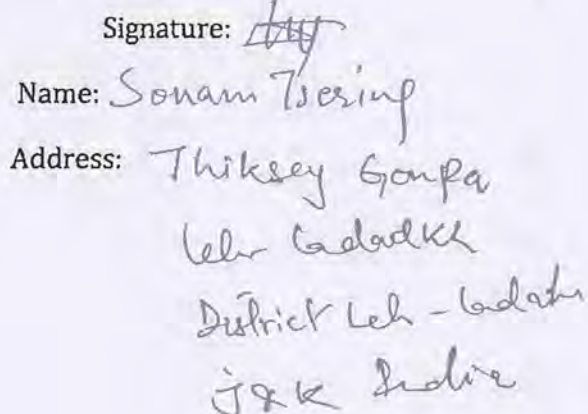 Signature:
Name: Sonam Tsering
Address: Thiksey Gonpa
Leh Ladadkh
District Leh - Ladakh
J&K India